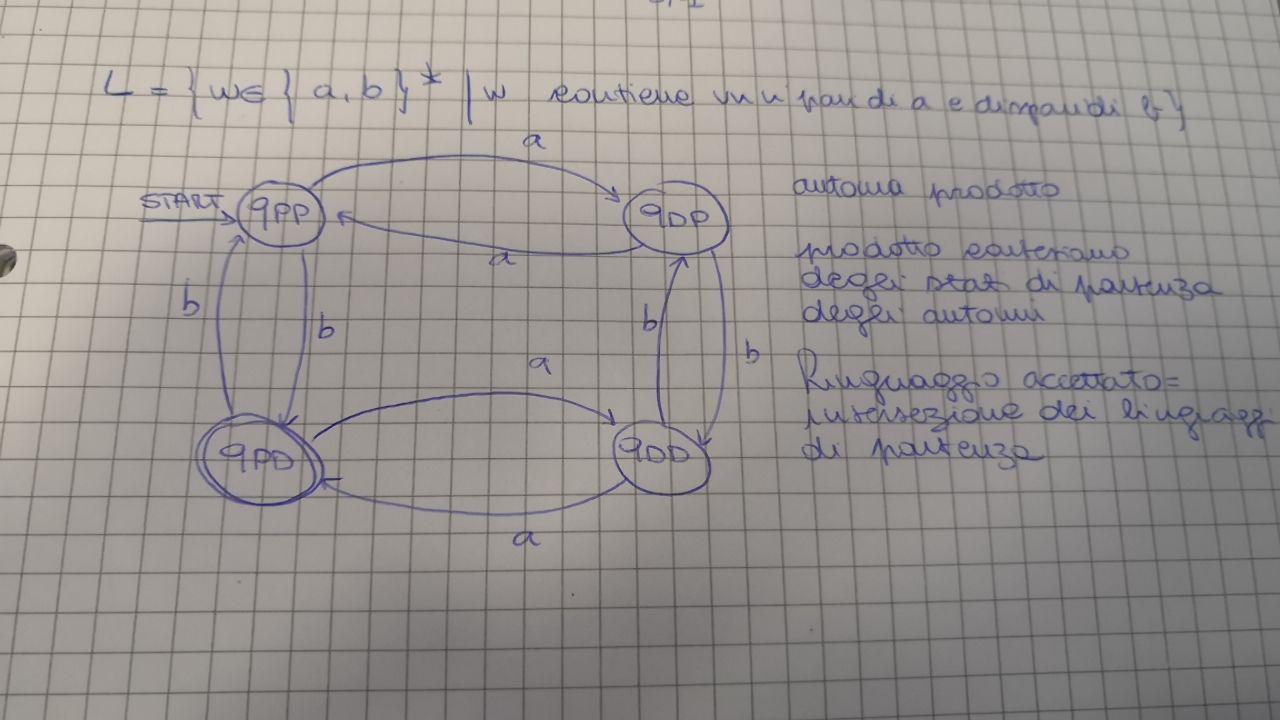 L = { w ∈ { a, b }* | w contiene un n° pari di a e dispari di b }
a
START
qPP
qDP
automa prodotto
a
prodotto cartesiano
degli stati di partenza
b
b
b
degli automi
a
b
linguaggio accettato =
intersezione dei linguaggi
qPD
qDD
di partenza
a